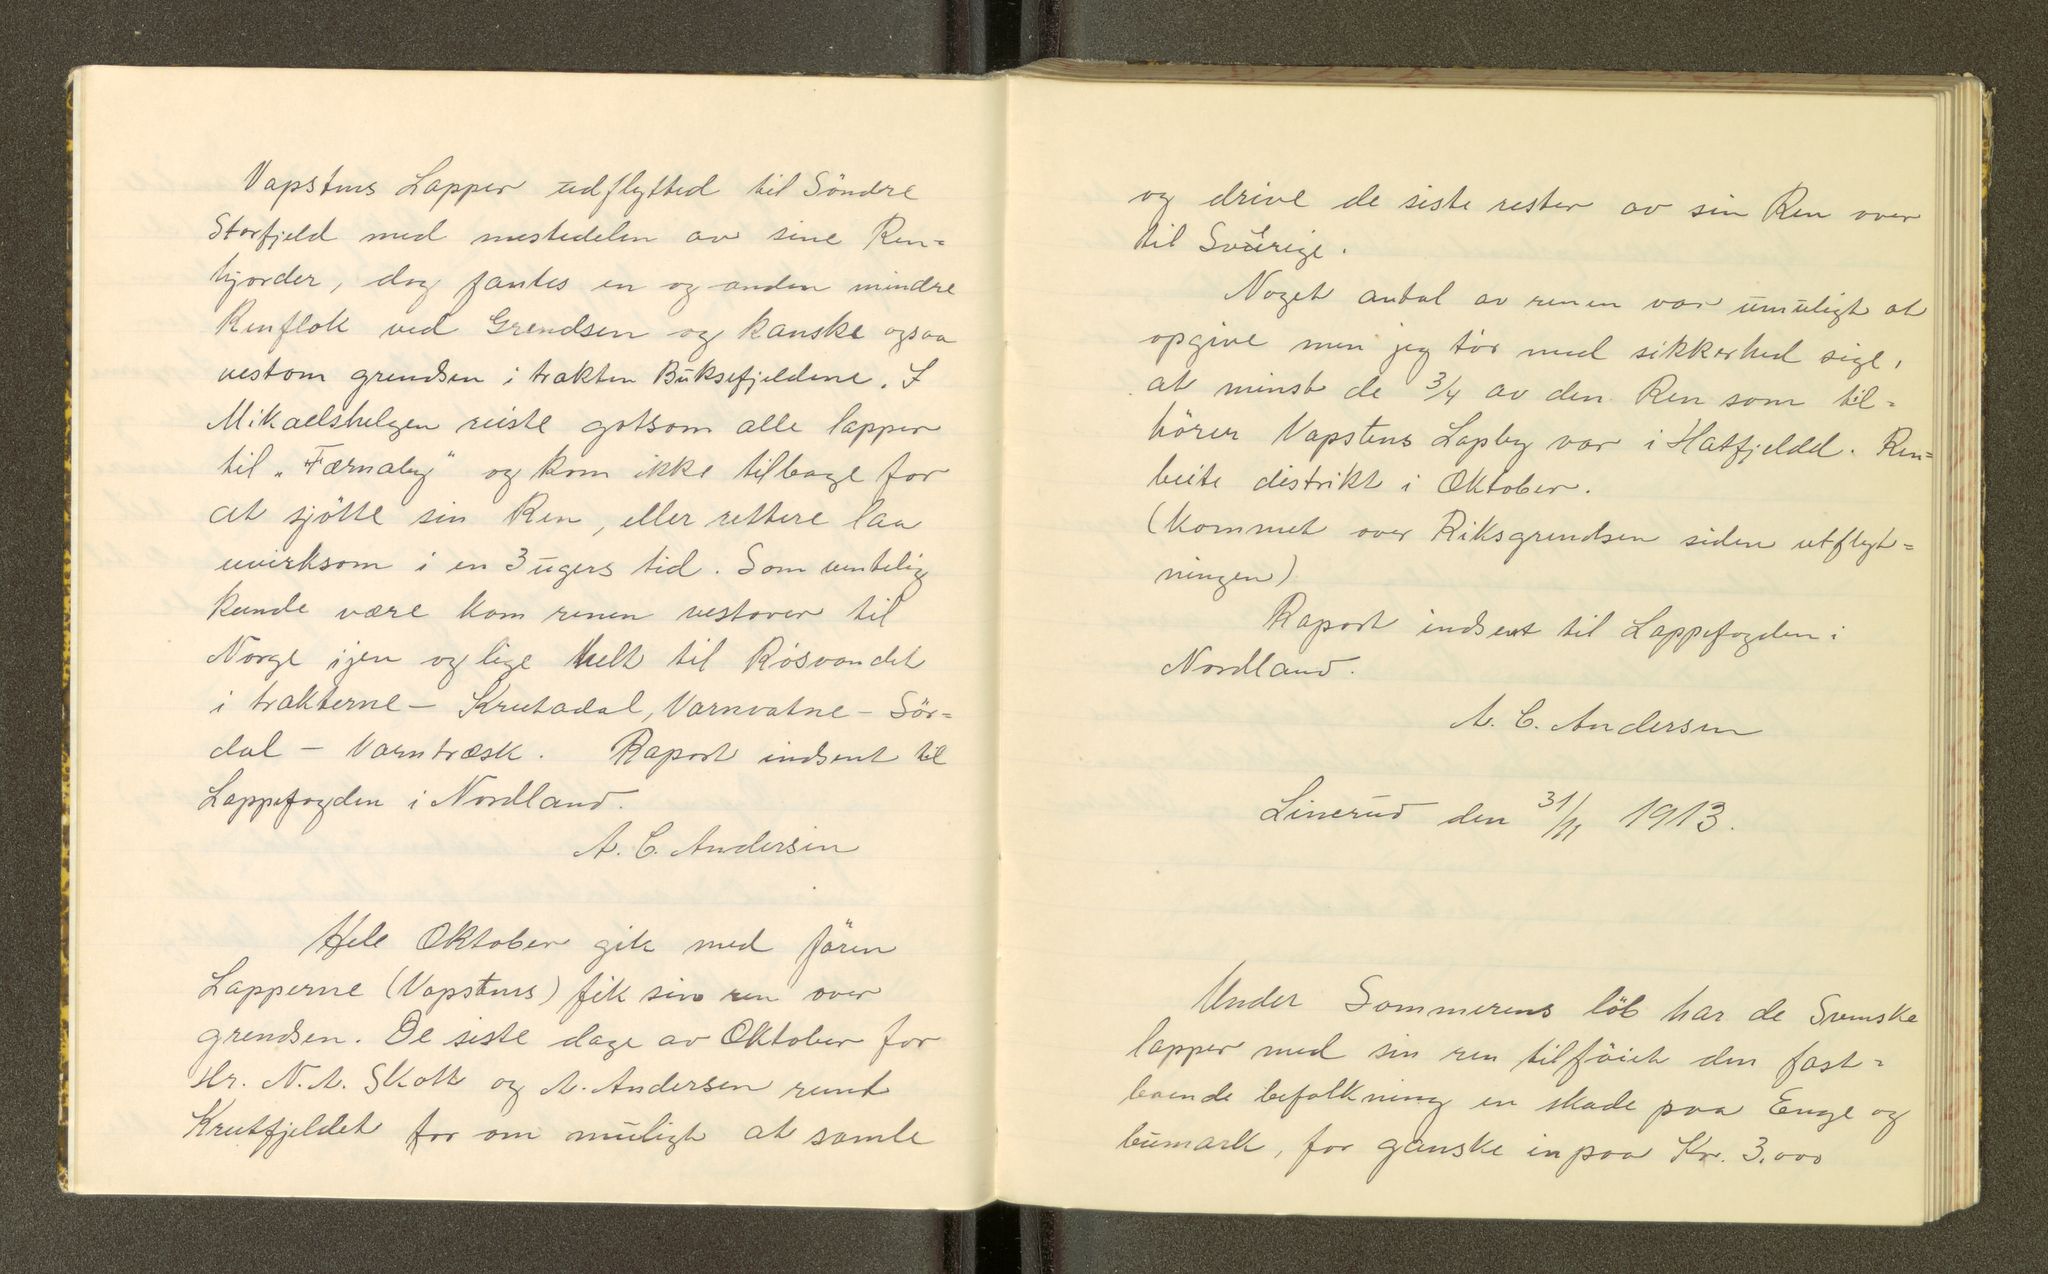 Vapstens Lapper udflytted til Söndre
Storfjeld med mestedelen av sine Ren-
hjorder, dog fantes en og anden mindre
Renflok ved Grendsen og kanske ogsaa
vestom grendsen i trakten Buksefjeldene. I
Mikaelshelgen reiste gotsom alle lapper
til "Færnaby" og kom ikke tilbage for
at sjötte sin Ren, eller rettere laa
uvirksom i en 3 ugers tid. Som ventelig
kunde være kom renen vestover til
Norge ijen og lige helt til Rösvandet
i trakterne – Krutadal, Varnvatne – Sör-
dal – Varntræsk. Raport indsent til
Lappefogden i Nordland.
A. C. Andersen
Hele Oktober gik med fören
Lapperne (Vapstens) fik sin ren over
grendsen. De siste dage av Oktober for
Hr. N. A. Skott og A. Andersen rundt
Krutfjeldet for om muligt at samle
og drive de siste rester av sin Ren over
til Sverige.
Noget antal av renen var umuligt at
opgive men jeg tör med sikkerhed sige,
at minst de 3/4 av den Ren som til-
hörer Vapstens Lapby var i Hatfjeldd. Ren-
beite distrikt i Oktober.
(Kommet over Riksgrendsen siden utflyt-
ningen)
Raport indsent til Lappefogden i
Nordland.
A. C. Andersen
Linerud den 31/11 1913.
Under Sommerens löb har de Svenske
lapper med sin ren tilföiet den fast-
boende befolkning en skade paa Enge og
bumark, for ganske in paa Kr. 3.000